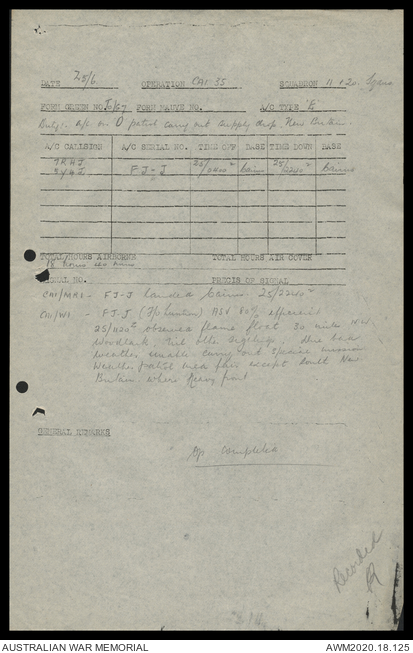 DATE 25/6. OPERATION CAI 35 SQUADRON 11 & 20. Sqdns
FORM GREEN NO. FORM MAUVE NO. A/C TYPE 'E'
Duty:- a/c on D patrol carry out supply drop, New Britain.
A/C CALLSIGN A/C SERIAL NO. TIME OFF BASE TIME DOWN BASE
FJ-J 25/0400 Z Cairns 25/2240 Z Cairns
TOTAL HOURS AIRBORNE TOTAL HOURS AIR COVER
18 hours
SERIAL NO. PRECIS OF SIGNAL
CAI/MR1 - FJ-J landed Cairns 25/2240 Z
CAI/W1 - FJ-J ASV 80% efficient
25/1120 Z observed flame float 30 miles NW
Woodlark. Nil other sightings. Due bad
weather unable carry out special mission
Weather patrol area fair except South New
Britain where heavy front
GENERAL REMARKS
Op Completed
Recorded
AUSTRALIAN WAR MEMORIAL AWM2020.18.125